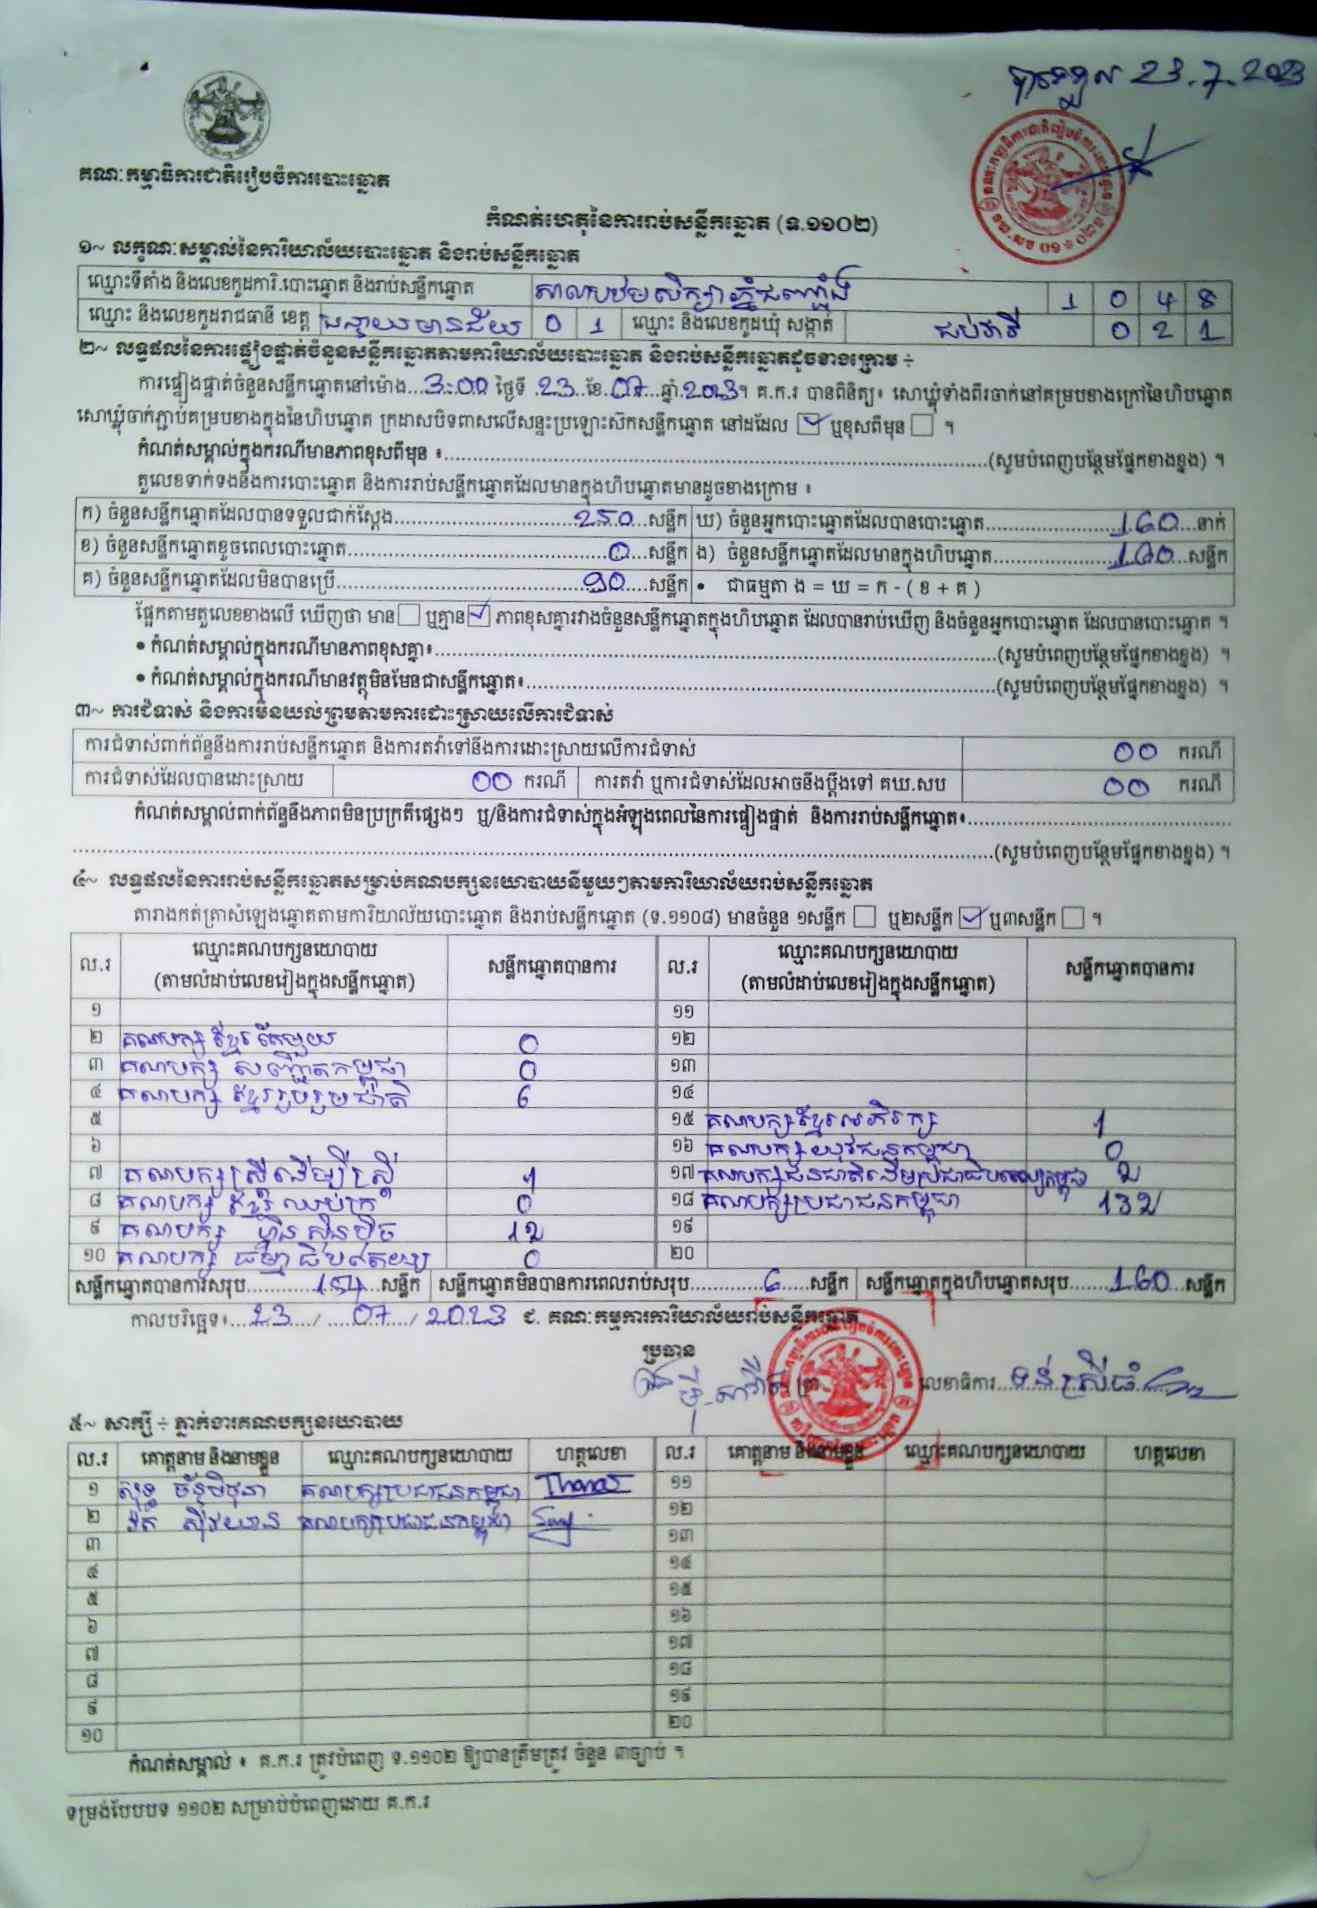 23.7.2023
គណៈកម្មាធិការជាតិរៀបចំការបោះឆ្នោត
កំណត់ហេតុនៃការរាប់សន្លឹកឆ្នោត (ទ.១១០២)
១~ លក្ខណៈសម្គាល់នៃការិយាល័យបោះឆ្នោត និងរាប់សន្លឹកឆ្នោត
ឈ្មោះទីតាំង និងលេខកូដការិ.បោះឆ្នោត និងរាប់សន្លឹកឆ្នោត សាលាបឋមសិក្សា 1 0 4 8
ឈ្មោះ និងលេខកូដរាជធានី ខេត្ត បន្ទាយមានជ័យ 0 1 ឈ្មោះ និងលេខកូដឃុំ សង្កាត់ ជប់វារី 0 2 1
២~ លទ្ធផលនៃការផ្ទៀងផ្ទាត់ចំនួនសន្លឹកឆ្នោតតាមការិយាល័យបោះឆ្នោត និងរាប់សន្លឹកឆ្នោតដូចខាងក្រោម ÷
ការផ្ទៀងផ្ទាត់ចំនួនសន្លឹកឆ្នោតនៅម៉ោង...3:00 ថ្ងៃទី.23...ខែ.07...ឆ្នាំ.2023។ គ.ក.រ បានពិនិត្យ៖ សោឃ្លុំទាំងពីរចាក់នៅគម្របខាងក្រៅនៃហិបឆ្នោត
សោឃ្លុំចាក់ភ្ជាប់គម្របខាងក្នុងនៃហិបឆ្នោត ក្រដាសបិទពាសលើសន្ទះប្រឡោះស៊កសន្លឹកឆ្នោត នៅដដែល ☑ ឬខុសពីមុន ☐ ។
កំណត់សម្គាល់ក្នុងករណីមានភាពខុសពីមុន ៖...(សូមបំពេញបន្ថែមផ្នែកខាងខ្នង) ។
តួលេខទាក់ទងនឹងការបោះឆ្នោត និងការរាប់សន្លឹកឆ្នោតដែលមានក្នុងហិបឆ្នោតមានដូចខាងក្រោម ៖
ក) ចំនួនសន្លឹកឆ្នោតដែលបានទទួលជាក់ស្តែង...250...សន្លឹក ឃ) ចំនួនអ្នកបោះឆ្នោតដែលបានបោះឆ្នោត...160...នាក់
ខ) ចំនួនសន្លឹកឆ្នោតខូចពេលបោះឆ្នោត...0...សន្លឹក ង) ចំនួនសន្លឹកឆ្នោតដែលមានក្នុងហិបឆ្នោត...160...សន្លឹក
គ) ចំនួនសន្លឹកឆ្នោតដែលមិនបានប្រើ...90...សន្លឹក • ជាធម្មតា ង = ឃ = ក - ( ខ + គ )
ផ្អែកតាមតួលេខខាងលើ ឃើញថា មាន ☐ ឬគ្មាន ☑ ភាពខុសគ្នារវាងចំនួនសន្លឹកឆ្នោតក្នុងហិបឆ្នោត ដែលបានរាប់ឃើញ និងចំនួនអ្នកបោះឆ្នោត ដែលបានបោះឆ្នោត ។
• កំណត់សម្គាល់ក្នុងករណីមានភាពខុសគ្នា៖...(សូមបំពេញបន្ថែមផ្នែកខាងខ្នង) ។
• កំណត់សម្គាល់ក្នុងករណីមានវត្ថុមិនមែនជាសន្លឹកឆ្នោត៖...(សូមបំពេញបន្ថែមផ្នែកខាងខ្នង) ។
៣~ ការជំទាស់ និងការមិនយល់ព្រមតាមការដោះស្រាយលើការជំទាស់
ការជំទាស់ពាក់ព័ន្ធនឹងការរាប់សន្លឹកឆ្នោត និងការតវ៉ាទៅនឹងការដោះស្រាយលើការជំទាស់ 00 ករណី
ការជំទាស់ដែលបានដោះស្រាយ 00 ករណី ការតវ៉ា ឬការជំទាស់ដែលអាចនឹងប្តឹងទៅ គឃ.សប 00 ករណី
កំណត់សម្គាល់ពាក់ព័ន្ធនឹងភាពមិនប្រក្រតីផ្សេងៗ ឬ/និងការជំទាស់ក្នុងអំឡុងពេលនៃការផ្ទៀងផ្ទាត់ និងការរាប់សន្លឹកឆ្នោត៖...
...(សូមបំពេញបន្ថែមផ្នែកខាងខ្នង) ។
៤~ លទ្ធផលនៃការរាប់សន្លឹកឆ្នោតសម្រាប់គណបក្សនយោបាយនីមួយៗតាមការិយាល័យរាប់សន្លឹកឆ្នោត
តារាងកត់ត្រាសំឡេងឆ្នោតតាមការិយាល័យបោះឆ្នោត និងរាប់សន្លឹកឆ្នោត (ទ.១១០៨) មានចំនួន ១សន្លឹក ☐ ឬ២សន្លឹក ☑ ឬ៣សន្លឹក ☐ ។
ល.រ ឈ្មោះគណបក្សនយោបាយ (តាមលំដាប់លេខរៀងក្នុងសន្លឹកឆ្នោត) សន្លឹកឆ្នោតបានការ ល.រ ឈ្មោះគណបក្សនយោបាយ (តាមលំដាប់លេខរៀងក្នុងសន្លឹកឆ្នោត) សន្លឹកឆ្នោតបានការ
១ ១១
២ គណបក្សខ្មែរតែមួយ 0 ១២
៣ គណបក្ស សញ្ជាតិកម្ពុជា 0 ១៣
៤ គណបក្ស ខ្មែររួបរួមជាតិ 6 ១៤
៥ ១៥ គណបក្សខ្មែរអភិរក្ស 1
៦ ១៦ គណបក្សយុវជនកម្ពុជា 0
៧ គណបក្សស្រីដើម្បីស្រី 1 ១៧ គណបក្សជនជាតិដើមប្រជាធិបតេយ្យកម្ពុជា 2
៨ គណបក្ស ខ្មែរឈប់ក្រ 0 ១៨ គណបក្សប្រជាជនកម្ពុជា 132
៩ គណបក្ស ហ្វ៊ុនស៊ិនប៉ិច 12 ១៩
១០ គណបក្ស ធម្មាធិបតេយ្យ 0 ២០
សន្លឹកឆ្នោតបានការសរុប...154...សន្លឹក សន្លឹកឆ្នោតមិនបានការពេលរាប់សរុប...6...សន្លឹក សន្លឹកឆ្នោតក្នុងហិបឆ្នោតសរុប...160...សន្លឹក
កាលបរិច្ឆេទ៖...23.../...07.../ 2023 ជ. គណៈកម្មការការិយាល័យរាប់សន្លឹកឆ្នោត
ប្រធាន
លេខាធិការ...ទន់ ស្រីធំ
៥~ សាក្សី ÷ ភ្នាក់ងារគណបក្សនយោបាយ
ល.រ គោត្តនាម និងនាមខ្លួន ឈ្មោះគណបក្សនយោបាយ ហត្ថលេខា ល.រ គោត្តនាម និងនាមខ្លួន ឈ្មោះគណបក្សនយោបាយ ហត្ថលេខា
១ គណបក្សប្រជាជនកម្ពុជា ១១
២ គណបក្សប្រជាជនកម្ពុជា ១២
៣ ១៣
៤ ១៤
៥ ១៥
៦ ១៦
៧ ១៧
៨ ១៨
៩ ១៩
១០ ២០
កំណត់សម្គាល់ ៖ គ.ក.រ ត្រូវបំពេញ ទ.១១០២ ឱ្យបានត្រឹមត្រូវ ចំនួន ៣ច្បាប់ ។
ទម្រង់បែបបទ ១១០២ សម្រាប់បំពេញដោយ គ.ក.រ